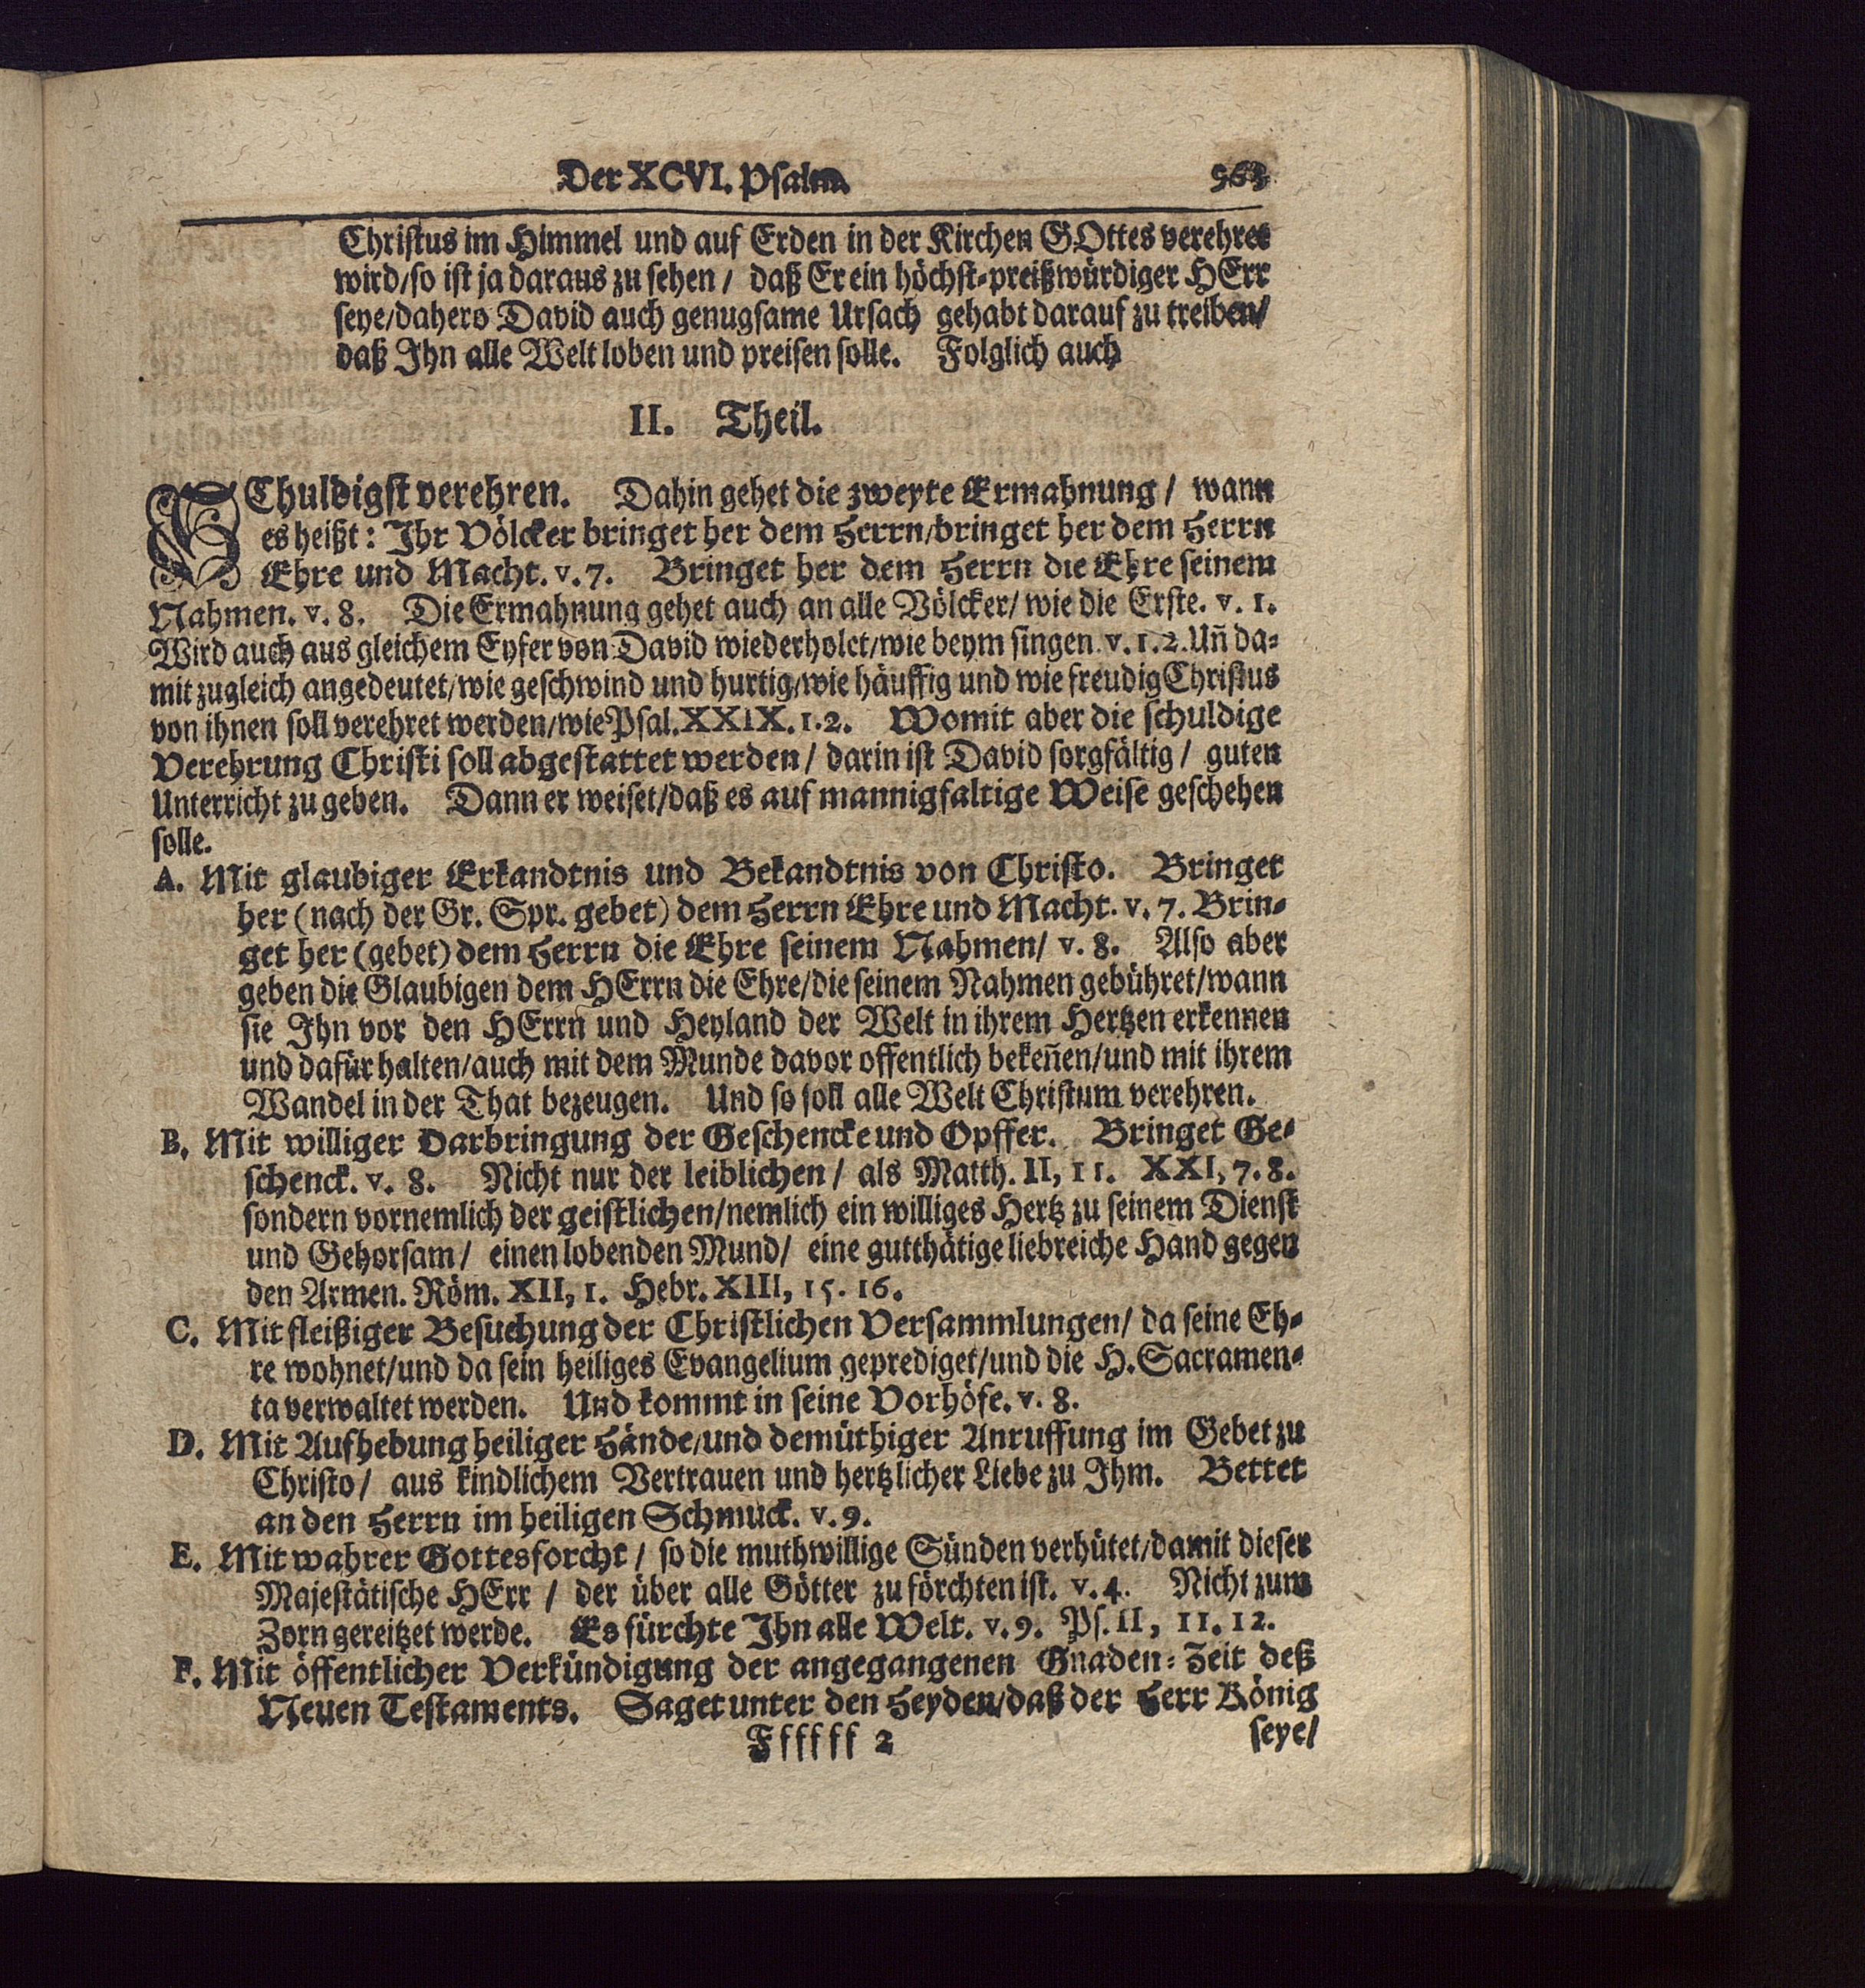 Der XCVI. Psalm. 963
Christus im Himmel und auf Erden in der Kirchen GOttes verehret
wird/so ist ja daraus zu sehen/ daß Er ein höchst-preißwürdiger HErr
seye/dahero David auch genugsame Ursach gehabt darauf zu treiben/
daß Ihn alle Welt loben und preisen solle. Folglich auch
II. Theil.
SChuldigst verehren. Dahin gehet die zweyte Ermahnung/ wann
es heißt: Ihr Völcker bringet her dem Herrn/bringet her dem Herrn
Ehre und Macht. v. 7. Bringet her dem Herrn die Ehre seinem
Nahmen. v. 8. Die Ermahnung gehet auch an alle Völcker/ wie die Erste. v. 1.
Wird auch aus gleichem Eyfer von David wiederholet/wie beym singen. v. 1. 2. Uñ da-
mit zugleich angedeutet/wie geschwind und hurtig/wie häuffig und wie freudig Christus
von ihnen soll verehret werden/wie Psal. XXIX. 1. 2. Womit aber die schuldige
Verehrung Christi soll abgestattet werden/ darin ist David sorgfältig/ guten
Unterricht zu geben. Dann er weiset/daß es auf mannigfaltige Weise geschehen
solle.
A. Mit glaubiger Erkandtnis und Bekandtnis von Christo. Bringet
her (nach der Gr. Spr. gebet) dem Herrn Ehre und Macht. v. 7. Brin-
get her (gebet) dem Herrn die Ehre seinem Nahmen/ v. 8. Also aber
geben die Glaubigen dem HErrn die Ehre/die seinem Nahmen gebühret/wann
sie Ihn vor den HErrn und Heyland der Welt in ihrem Hertzen erkennen
und dafür halten/auch mit dem Munde davor offentlich bekeñen/und mit ihrem
Wandel in der That bezeugen. Und so soll alle Welt Christum verehren.
B. Mit williger Darbringung der Geschencke und Opffer. Bringet Ge-
schenck. v. 8. Nicht nur der leiblichen/ als Matth. II, 11. XXI, 7. 8.
sondern vornemlich der geistlichen/nemlich ein williges Hertz zu seinem Dienst
und Gehorsam/ einen lobenden Mund/ eine gutthätige liebreiche Hand gegen
den Armen. Röm. XII, 1. Hebr. XIII, 15. 16.
C. Mit fleißiger Besuchung der Christlichen Versammlungen/ da seine Eh-
re wohnet/und da sein heiliges Evangelium geprediget/und die H. Sacramen-
ta verwaltet werden. Und kommt in seine Vorhöfe. v. 8.
D. Mit Aufhebung heiliger Hände/und demüthiger Anruffung im Gebet zu
Christo/ aus kindlichem Vertrauen und hertzlicher Liebe zu Ihm. Bettet
an den Herrn im heiligen Schmuck. v. 9.
E. Mit wahrer Gottesforcht/ so die muthwillige Sünden verhütet/damit dieser
Majestätische HErr / der über alle Götter zu förchten ist. v. 4. Nicht zum
Zorn gereitzet werde. Es fürchte Ihn alle Welt. v. 9. Ps. II, 11. 12.
F. Mit öffentlicher Verkündigung der angegangenen Gnaden-Zeit deß
Neuen Testaments. Saget unter den Heyden/daß der Herr König
Ffffff 2 seye/